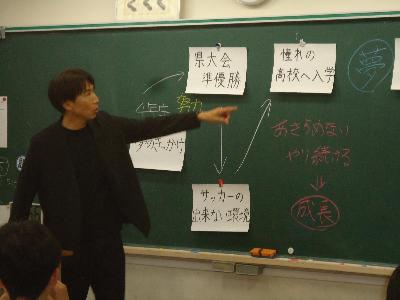 県大会
準優勝
憧れの
高校へ入学
夢
努力
きっかけ
あきらめない
やり続ける
成長
サッカーの
出来ない環境